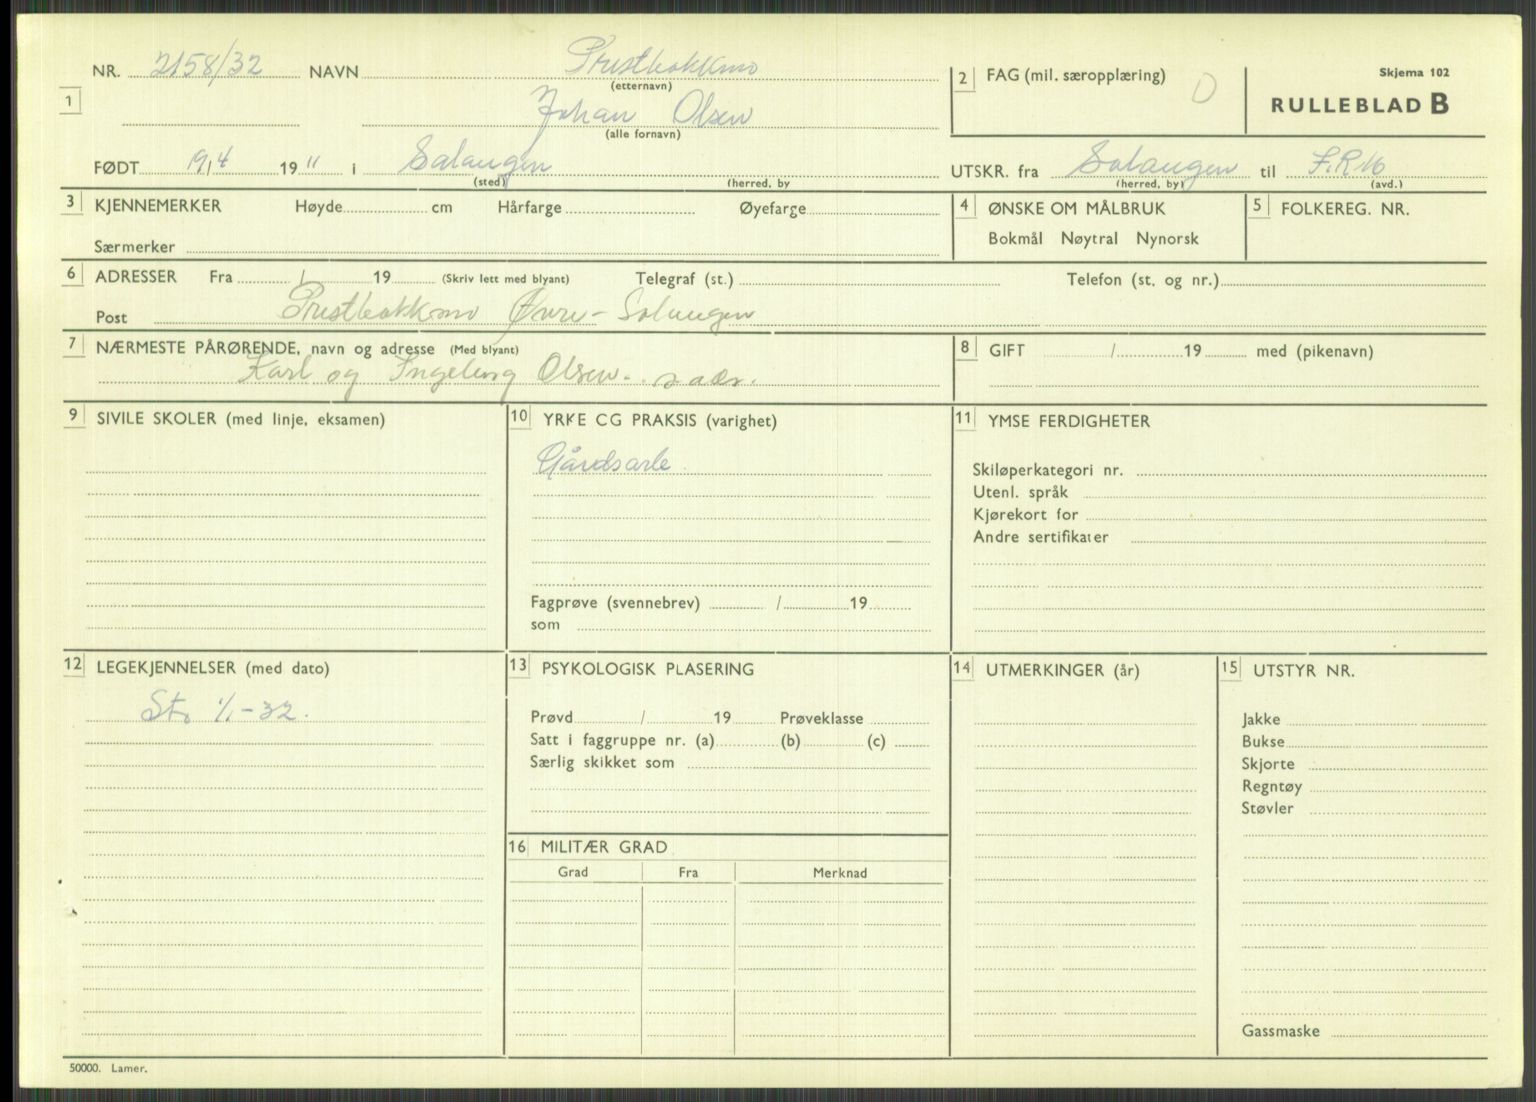 NR. 2158/32 NAVN Prestbakkmo
(etternavn)
1
Johan Olsen
(alle fornavn)
2 FAG (mil. særopplæring) D
Skjema 102
RULLEBLAD B
FØDT 19/4 19 11 i Salangen
(sted) (herred, by
UTSKR. fra Salangen til F.R.16
(herred, by) (avd.)
3 KJENNEMERKER Høyde cm Hårfarge Øyefarge
Særmerker
4 ØNSKE OM MÅLBRUK
Bokmål Nøytral Nynorsk
5 FOLKEREG. NR.
6 ADRESSER Fra / 19 (Skriv lett med blyant) Telegraf (st.) Telefon (st. og nr.)
Post Prestbakkmo Øvre - Salangen
7 NÆRMESTE PÅRØRENDE, navn og adresse (Med blyant)
Karl og Ingeborg Olsen. s. adr.
8 GIFT / 19 med (pikenavn)
9 SIVILE SKOLER (med linje, eksamen)
10 YRKE OG PRAKSIS (varighet)
Gårdsarb.
Fagprøve (svennebrev) / 19
som
11 YMSE FERDIGHETER
Skiløperkategori nr.
Utenl. språk
Kjørekort for
Andre sertifikater
12 LEGEKJENNELSER (med dato)
St. 1/1-32.
13 PSYKOLOGISK PLASERING
Prøvd / 19 Prøveklasse
Satt i faggruppe nr. (a) (b) (c)
Særlig skikket som
16 MILITÆR GRAD
Grad Fra Merknad
14 UTMERKINGER (år)
15 UTSTYR NR.
Jakke
Bukse
Skjorte
Regntøy
Støvler
Gassmaske
50000. Lamer.